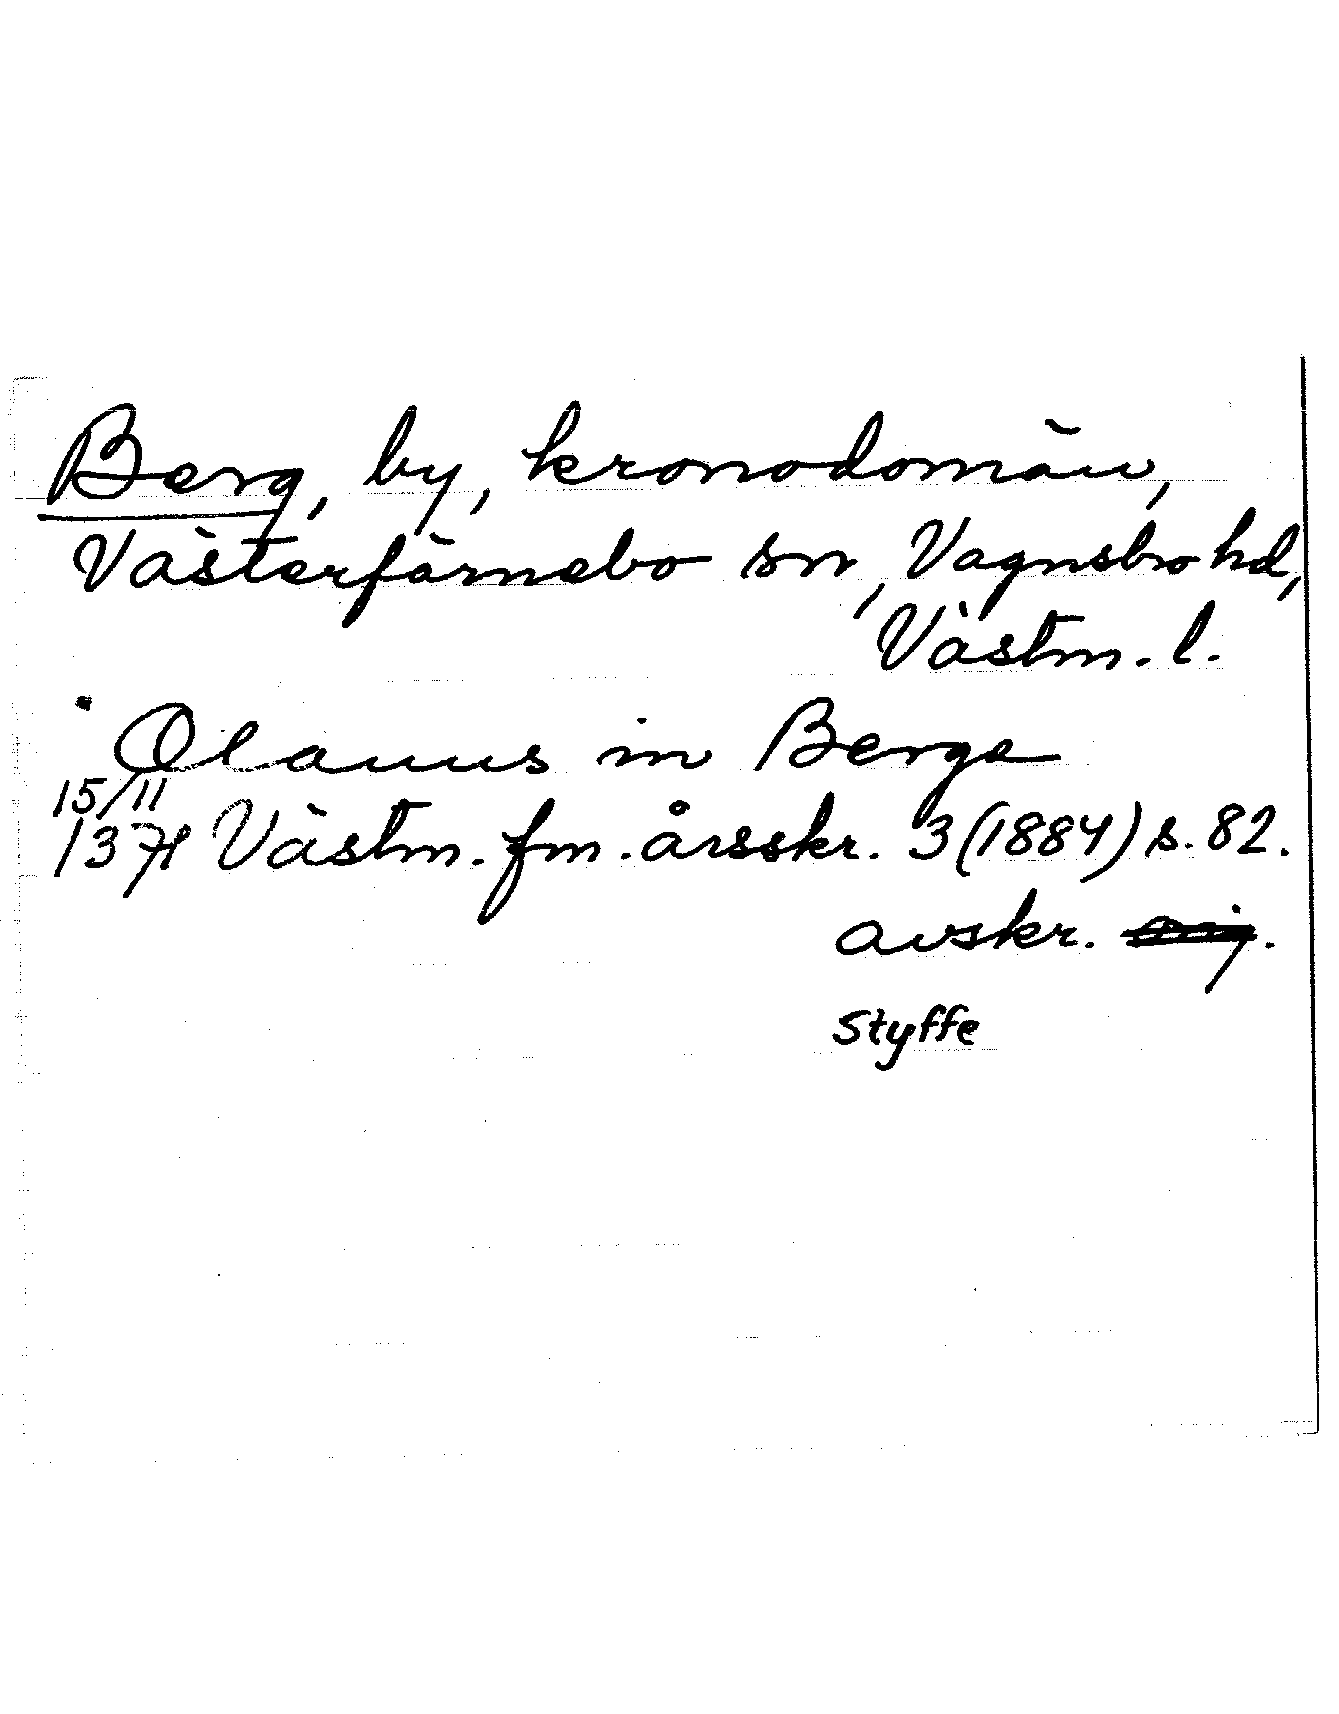 Berg, by, kronodomän,
Västerfärnebo sn, Vagnsbro hd,
Västm. l.
Olauus in Berga
15/11
1371 Västm. fm. årsskr. 3 (1884) s. 82.
avskr.
Styffe